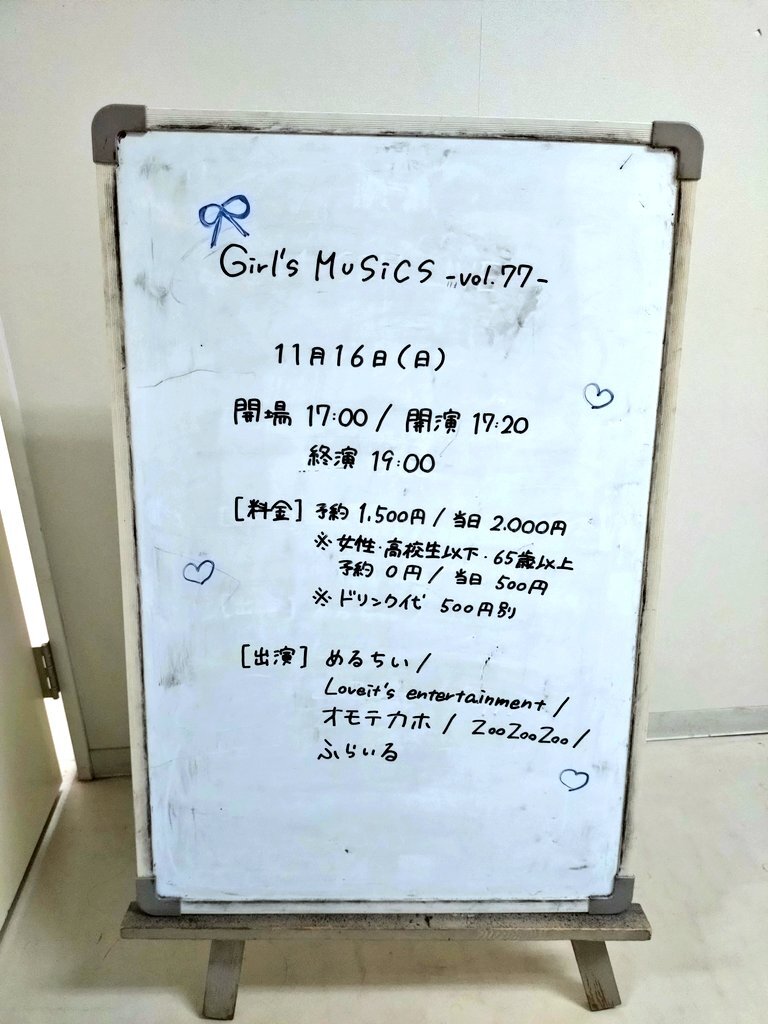 Girl's MUSiCS -vol.77-
11月16日(日)
開場 17:00 / 開演 17:20
終演 19:00
[料金] 予約 1.500円 / 当日 2.000円
※ 女性・高校生以下・65歳以上
予約 0円 / 当日 500円
※ ドリンク代 500円別
[出演] めるちぃ /
Loveit's entertainment /
オモテカホ / ZooZooZoo /
ふらいる